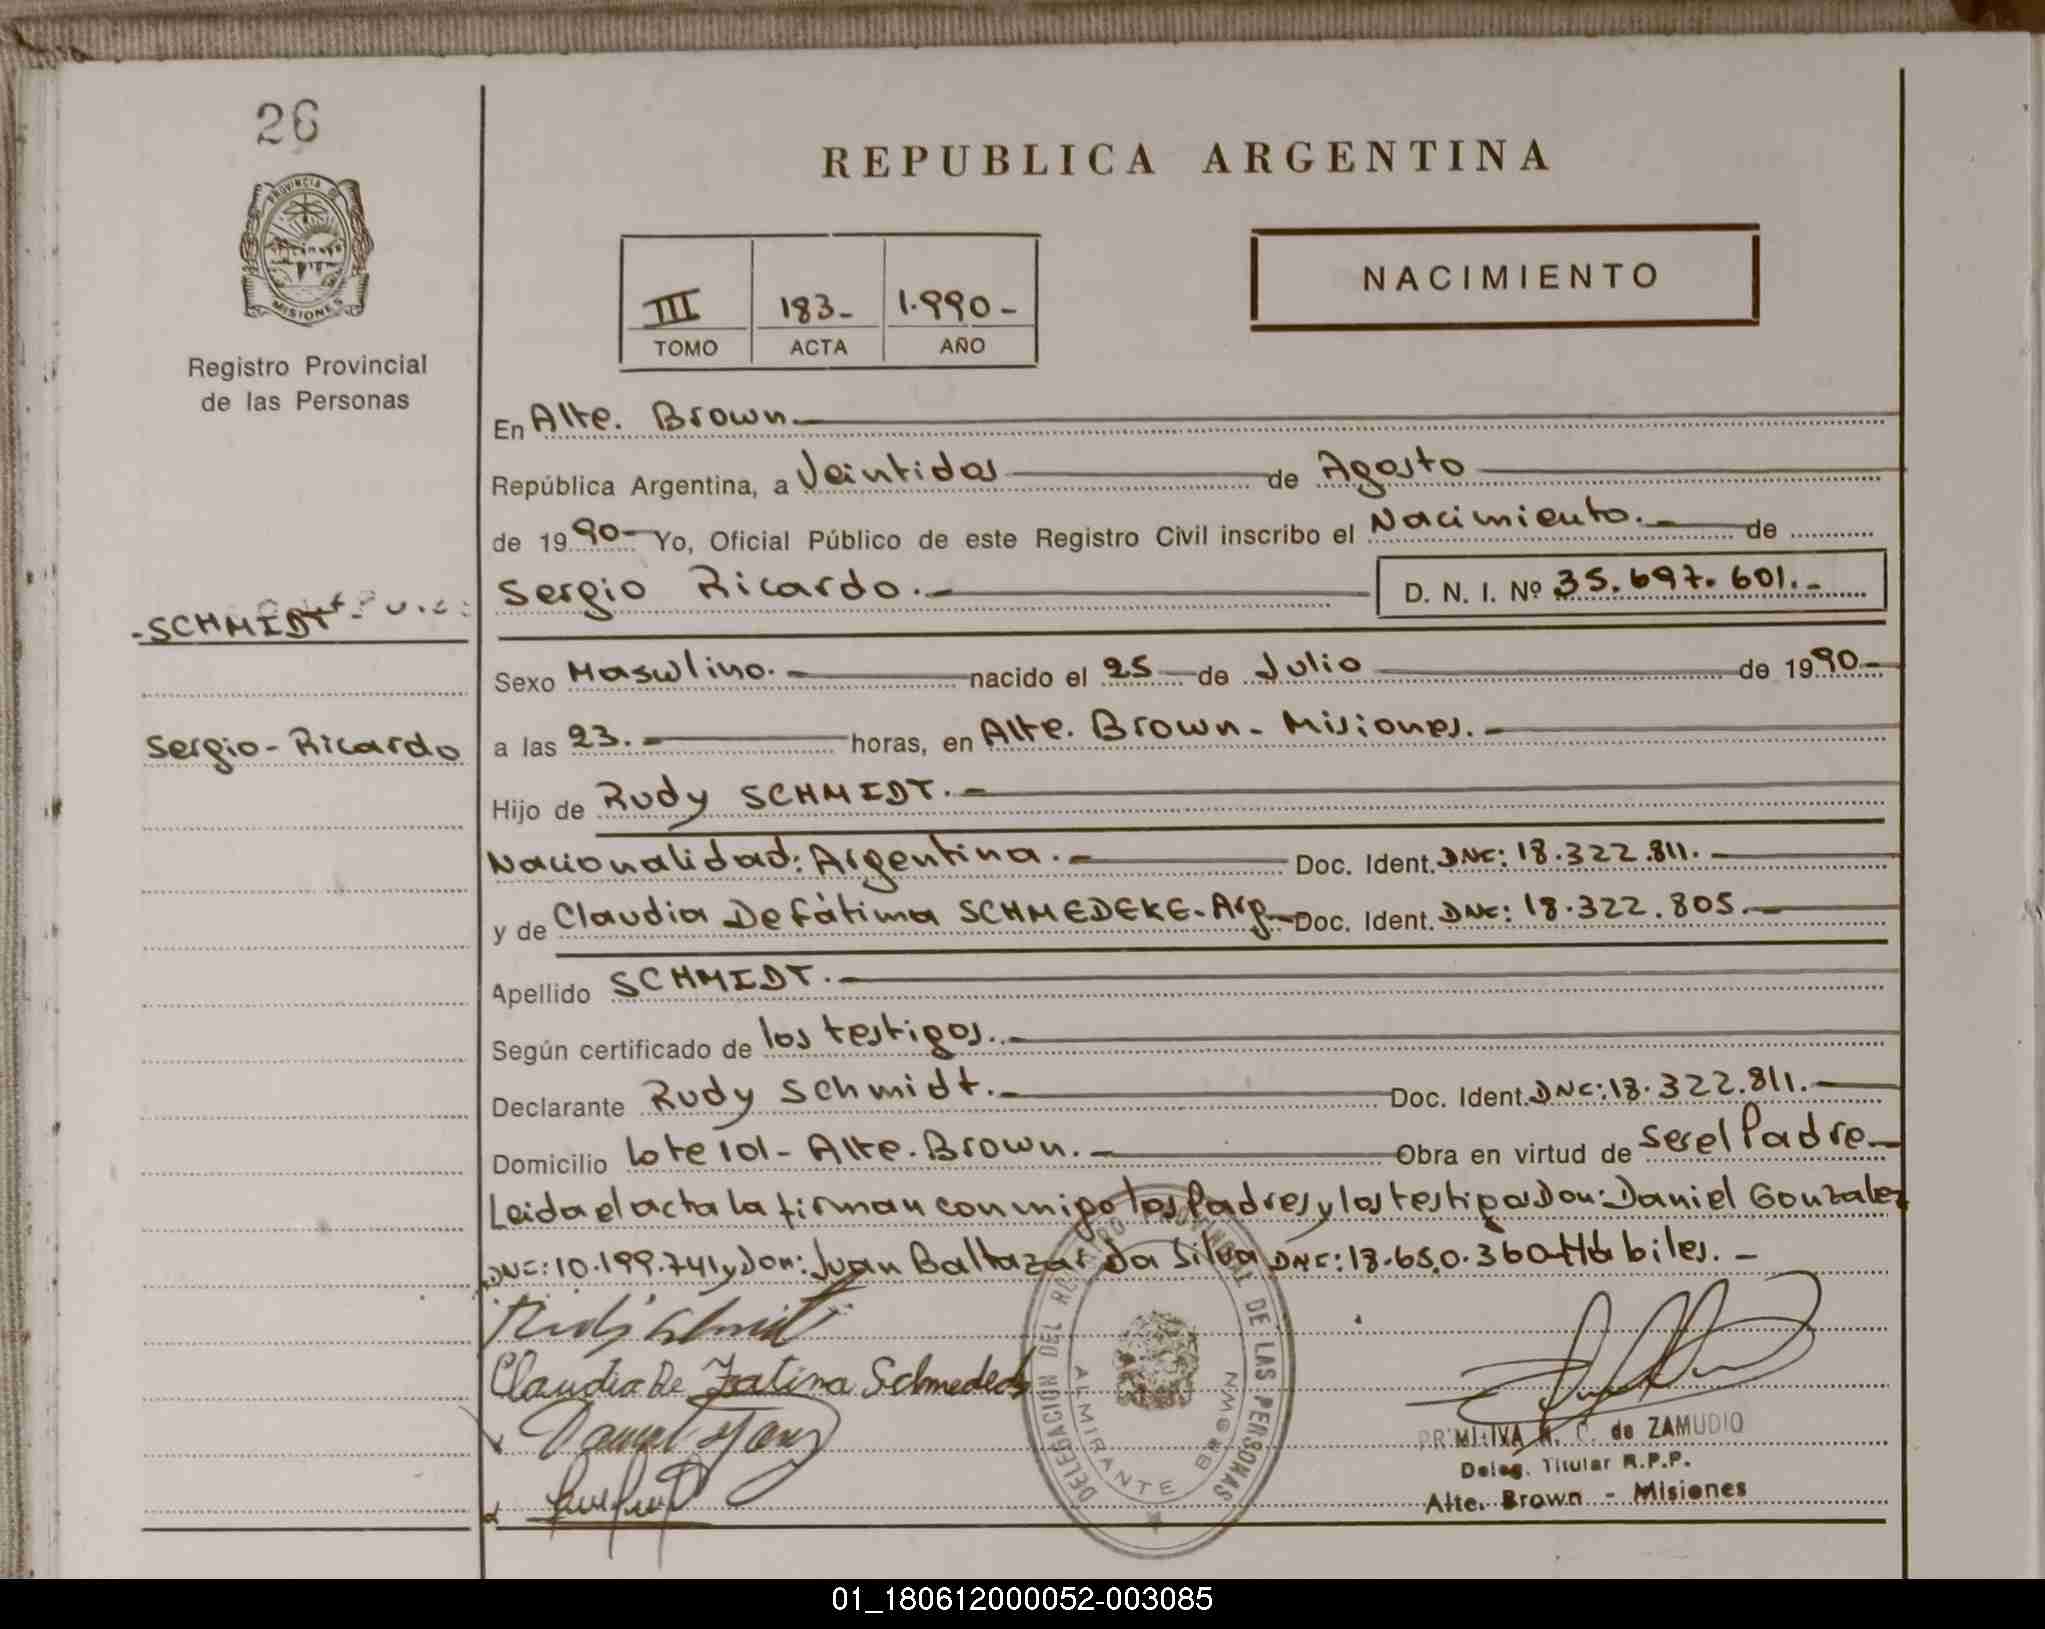 26
PROVINCIA DE
MISIONES
Registro Provincial
de las Personas
REPUBLICA ARGENTINA
III 183- 1.990-
TOMO ACTA AÑO
NACIMIENTO
En Alte. Brown.
República Argentina, a Veintidos de Agosto
de 1990- Yo, Oficial Público de este Registro Civil inscribo el Nacimiento.- de
Sergio Ricardo.- D. N. I. Nº 35.697.601.-
-SCHMIDT-
Sexo Masculino.- nacido el 25 de Julio de 1990-
Sergio-Ricardo
a las 23.- horas, en Alte. Brown- Misiones.-
Hijo de Rudy SCHMIDT.-
Nacionalidad: Argentina.- Doc. Ident. DNI: 18.322.811.-
y de Claudia De Fátima SCHMEDEKE-Arg- Doc. Ident. DNI: 18.322.805.-
Apellido SCHMIDT.-
Según certificado de los testigos.-
Declarante Rudy Schmidt.- Doc. Ident. DNI: 18.322.811.-
Domicilio Lote 101- Alte. Brown.- Obra en virtud de ser el Padre-
Leida el acta la firman conmigo los Padres y los testigos Don: Daniel Gonzalez
DNI: 10.199.741 y Don: Juan Baltazar Da Silva DNI: 18.650.360-Hábiles.-
Claudia De Fatima Schmedeke
DELEGACION DEL REGISTRO PROVINCIAL DE LAS PERSONAS
ALMIRANTE BROWN
PRIMITIVA N. C. de ZAMUDIO
Deleg. Titular R.P.P.
Alte. Brown - Misiones
01_180612000052-003085